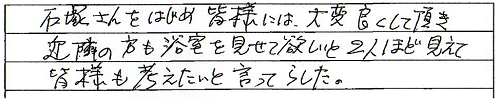 石塚さんをはじめ皆様には、大変良くして頂き
近隣の方も浴室を見せて欲しいと2人ほど見えて
皆様も考えたいと言ってらした。